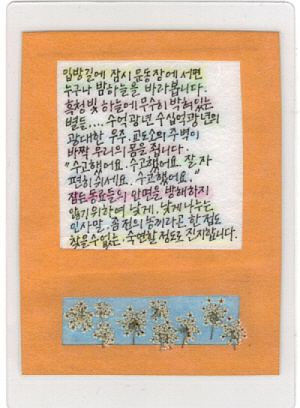 입방길에 잠시 운동장에 서면
누구나 밤하늘을 바라봅니다.
흑청빛 하늘에 무수히 박혀있는
별들.... 수억광년 수십억광년의
광대한 우주. 교도소의 주벽이
바짝 우리의 몸을 죕니다.
"수고했어요. 수고했어요. 잘 자
편히 쉬세요. 수고했어요."
잠든 동료들의 안면을 방해하지
않기 위하여 낮게. 낮게 나누는
인사말. 좀전의 농끼라곤 한 점도
찾을 수 없는. 숙연할 정도로 진지합니다.